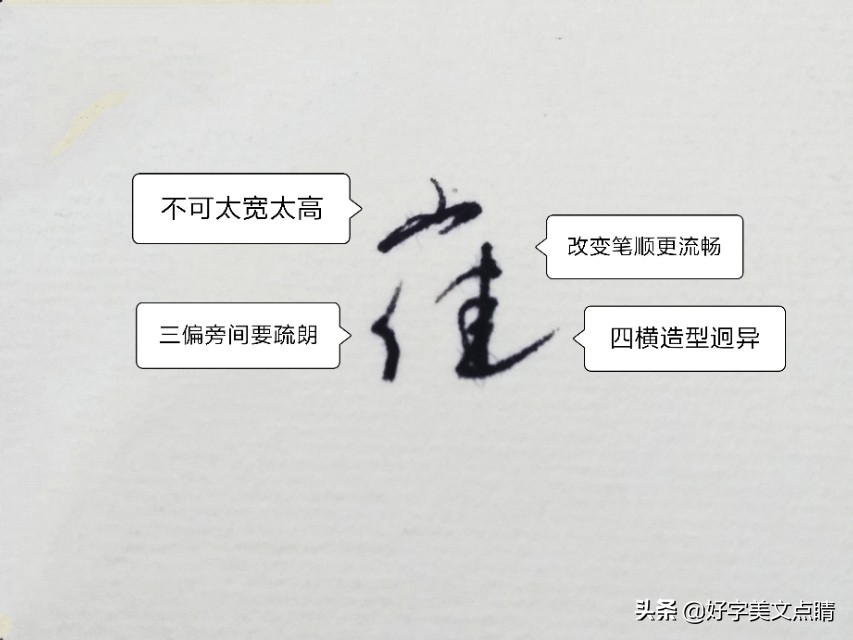 不可太宽太高
崔
改变笔顺更流畅
三偏旁间要疏朗
四横造型迥异
头条 @好字美文点睛